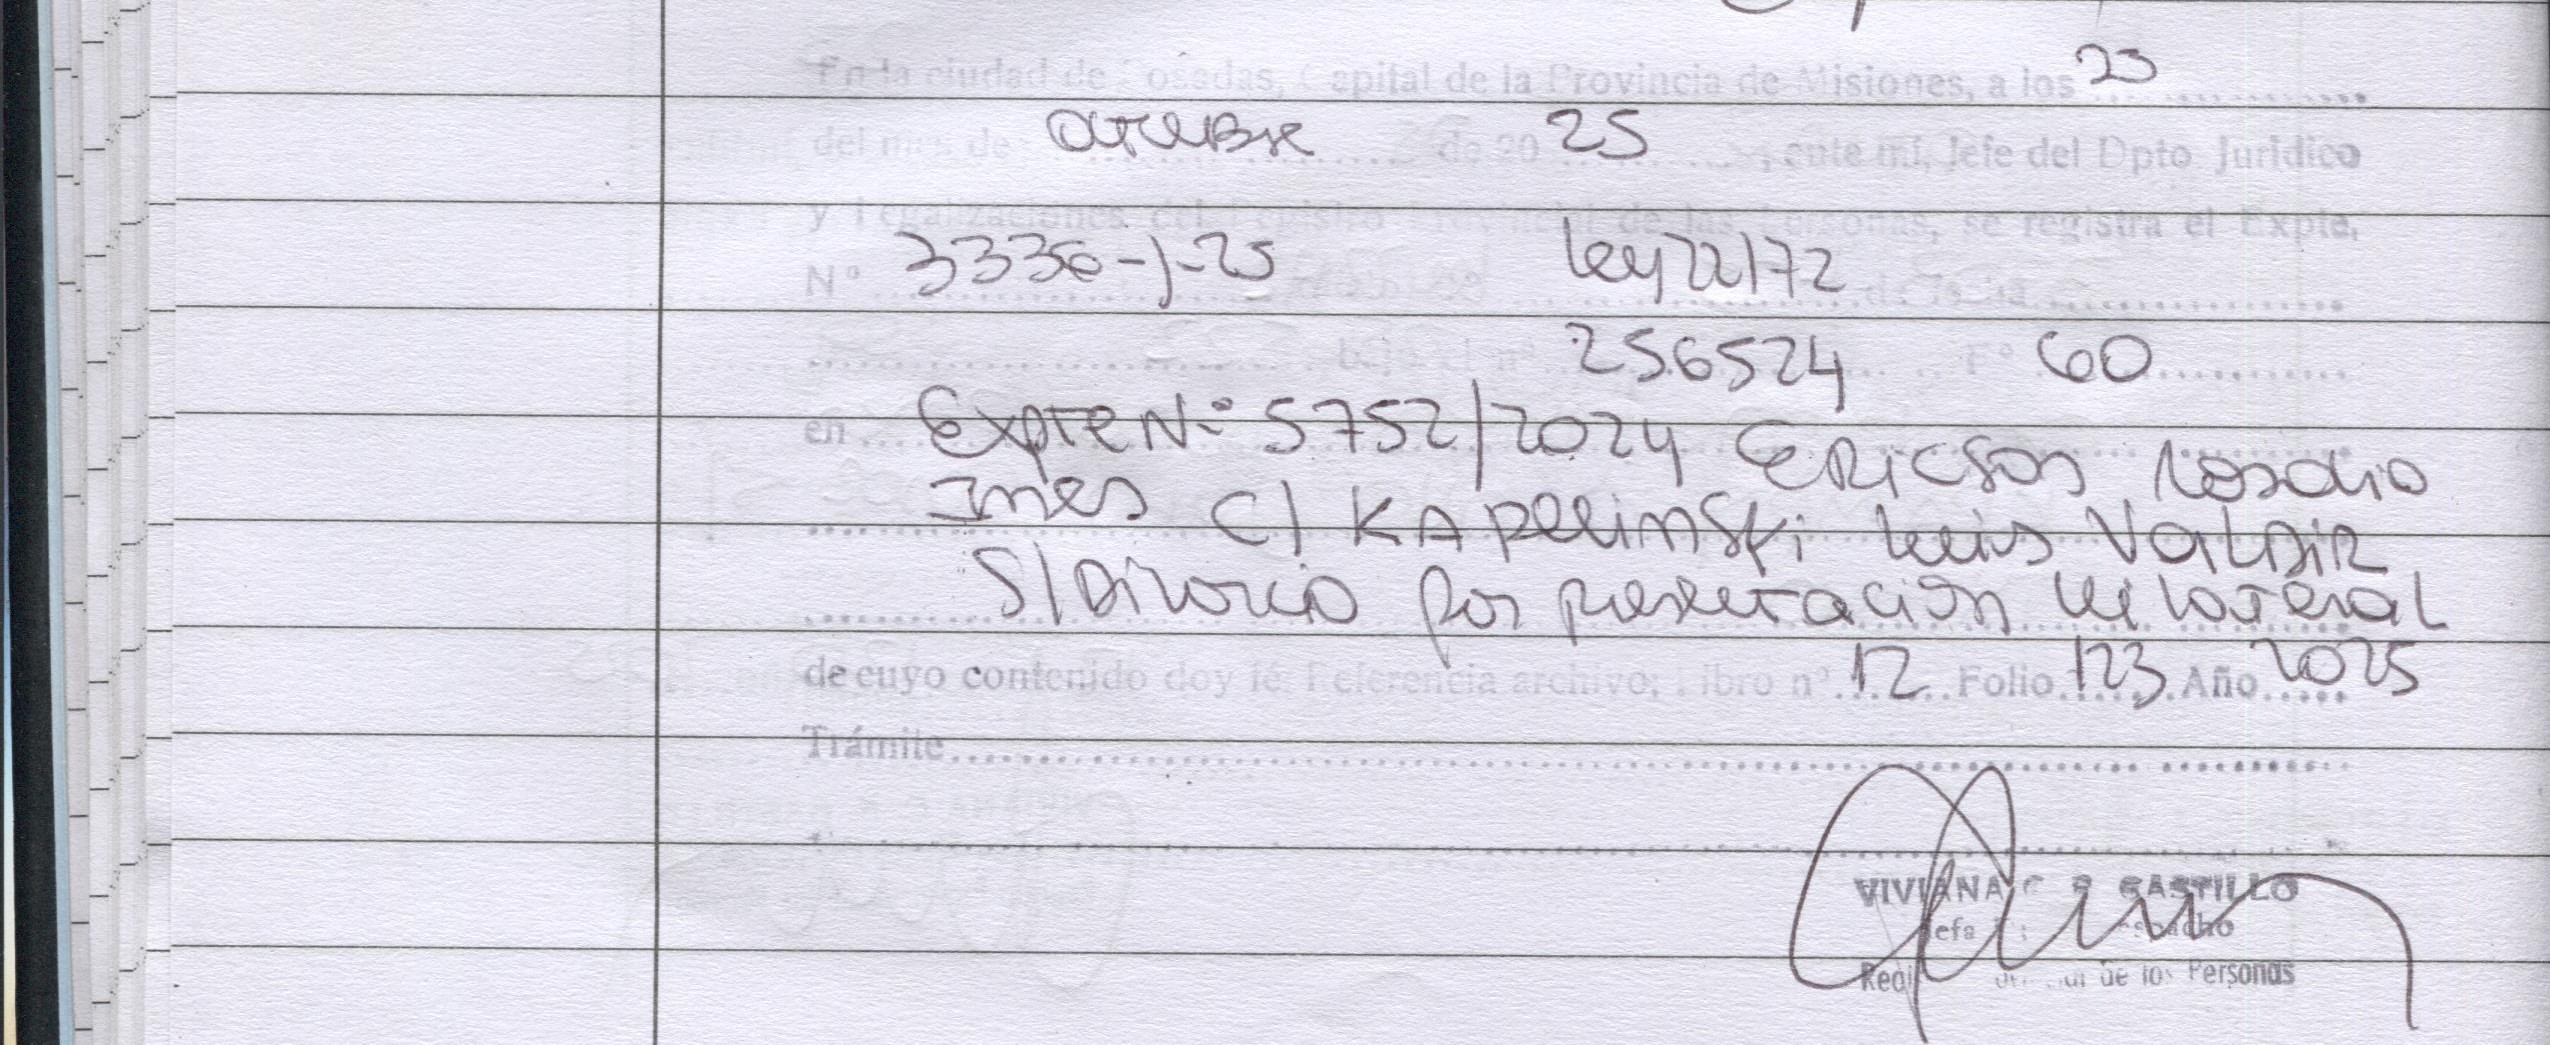 En la ciudad de Posadas, Capital de la Provincia de Misiones, a los 23
del mes de octubre de 20 25, ante mí, Jefe del Dpto Jurídico
y Legalizaciones del Registro Provincial de las Personas, se registra el Expte,
Nº 3336-J-25 Ley 22172 de fecha
bajo el nº 256524 Fº 60
en Expte N: 5752/2024 Ericson Rosario
Ines C/ Kapelinski Luis Valdir
S/Divorcio por presentación Unilateral
de cuyo contenido doy fé. Referencia archivo; Libro nº 12 Folio 123 Año 2025
Trámite
VIVIANA CASTILLO
Jefa Despacho
de los Personas